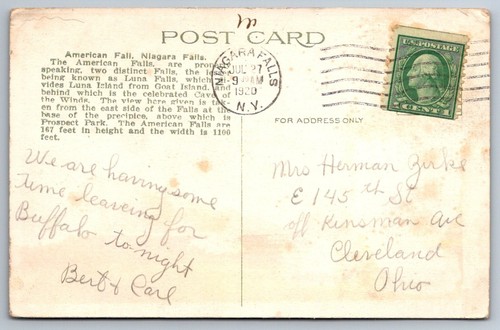 m
POST CARD
American Fall, Niagara Falls.
The American Falls, are
speaking, two distinct Falls, the
being known as Luna Falls, which
vides Luna Island from Goat Island, and
behind which is the celebrated Cave of
the Winds. The view here given is tak-
en from the east side of the Falls at the
base of the precipice, above which is
Prospect Park. The American Falls are
167 feet in height and the width is 1100
feet.
NIAGARA FALLS
JUL 27
9 AM
1920
N.Y.
U.S. POSTAGE
1 CENT 1
FOR ADDRESS ONLY
We are having some
time leaveing for
Buffalo to-night
Bert & Carl
Mrs Herman Zirke
E 145 th St
off Kinsman Ave
Cleveland
Ohio